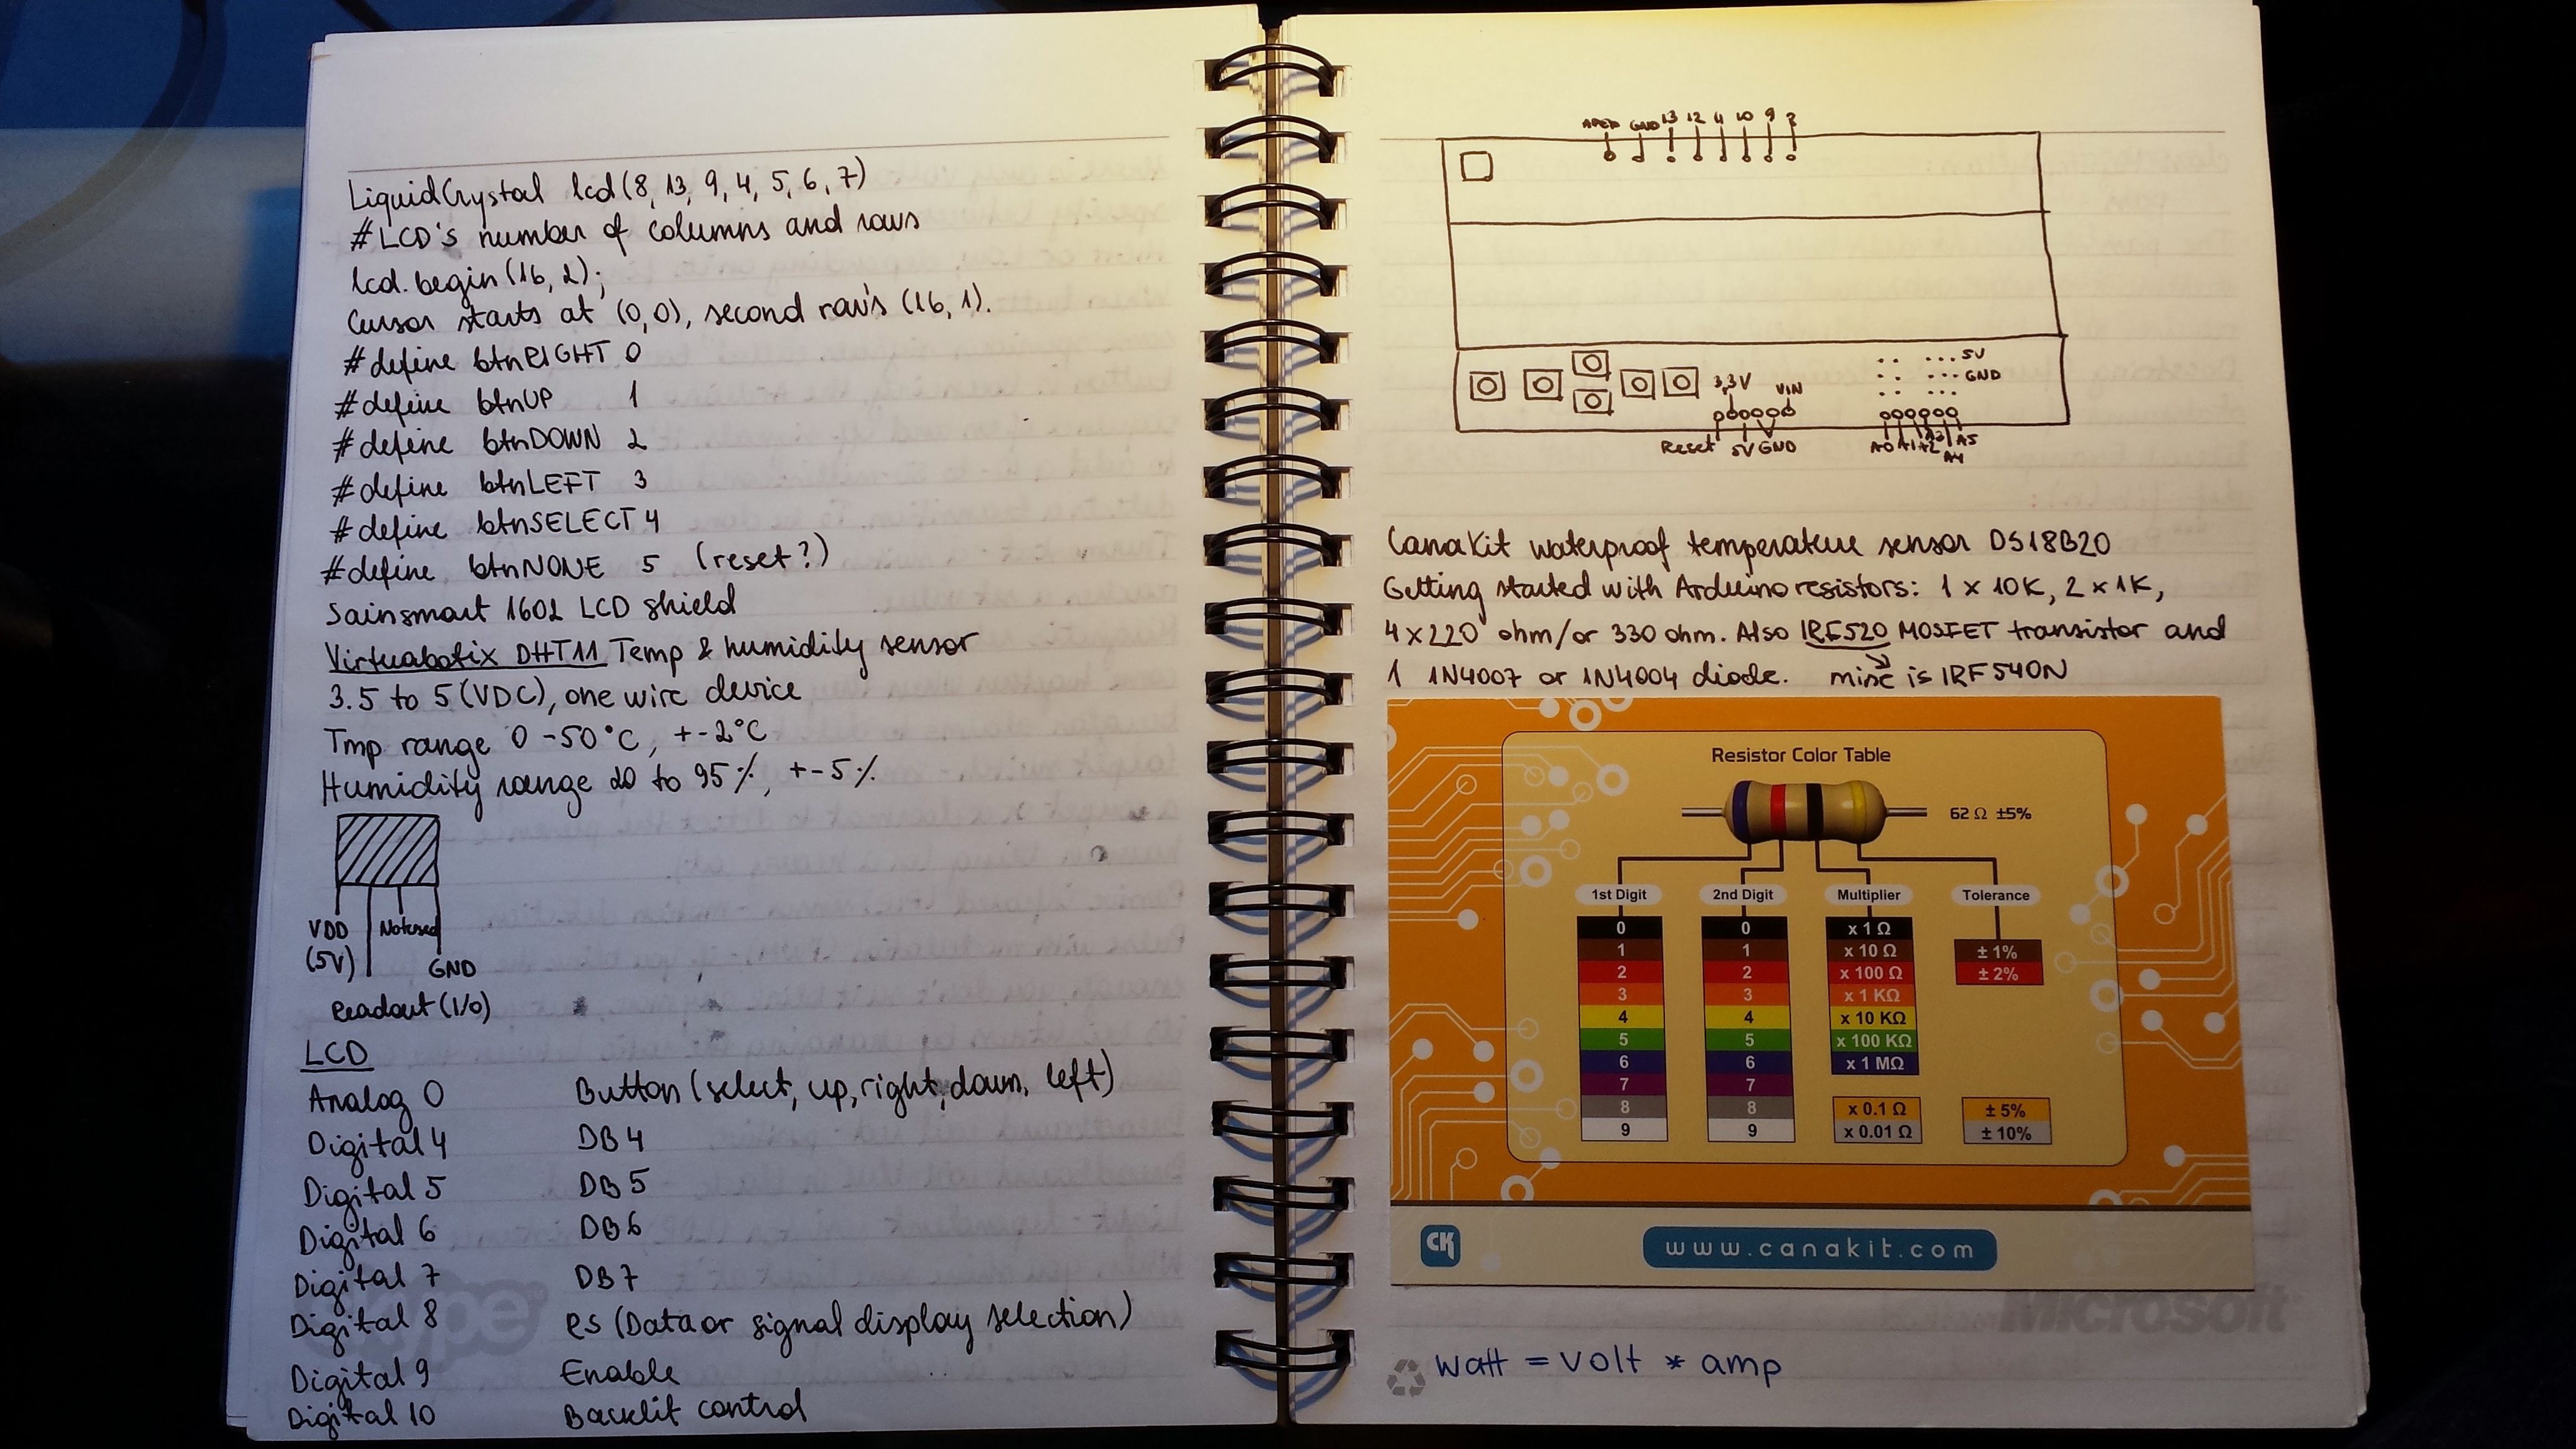 LiquidCrystal lcd(8, 13, 9, 4, 5, 6, 7)
#LCD's number of columns and rows
lcd.begin(16, 2);
Cursor starts at (0,0), second row's (16, 1).
#define btnRIGHT 0
#define btnUP 1
#define btnDOWN 2
#define btnLEFT 3
#define btnSELECT 4
#define btnNONE 5 (reset?)
Sainsmart 1602 LCD shield
Virtuabotix DHT11 Temp & humidity sensor
3.5 to 5 (VDC), one wire device
Tmp range 0 -50°C, +-2°C
Humidity range 20 to 95%, +-5%
VDD
(5V)
Not used
GND
Readout (I/O)
LCD
Analog 0 Button (select, up, right, down, left)
Digital 4 DB4
Digital 5 DB5
Digital 6 DB6
Digital 7 DB7
Digital 8 RS (Data or signal display selection)
Digital 9 Enable
Digital 10 Backlit control
GND 13 12 4 10 9 2
5V
GND
3,3V VIN
Reset 5V GND
A0 A1 A2 A3 A4 A5
CanaKit waterproof temperature sensor DS18B20
Getting started with Arduino resistors: 1 x 10K, 2 x 1K,
4 x 220 ohm/or 330 ohm. Also IRF520 MOSFET transistor and
1 1N4007 or 1N4004 diode. mine is IRF540N
Resistor Color Table
62 Ω ±5%
1st Digit 2nd Digit Multiplier Tolerance
0 0 x 1 Ω
1 1 x 10 Ω ± 1%
2 2 x 100 Ω ± 2%
3 3 x 1 KΩ
4 4 x 10 KΩ
5 5 x 100 KΩ
6 6 x 1 MΩ
7 7
8 8 x 0.1 Ω ± 5%
9 9 x 0.01 Ω ± 10%
CK
www.canakit.com
Microsoft
watt = volt * amp